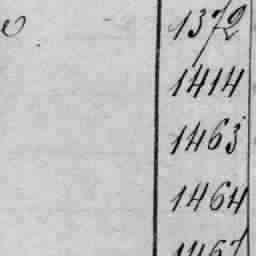 1372
1414
1463
1464
1467